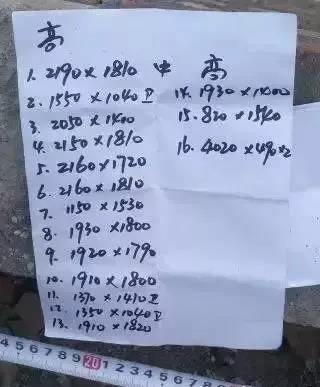 高
1. 2190×1810 中
2. 1550×1040 Ⅱ
3. 2050×1400
4. 2150×1810
5. 2160×1720
6. 2160×1810
7. 1150×1530
8. 1930×1800
9. 1920×1790
10. 1910×1800
11. 1370×1410 Ⅱ
12. 1350×1040 Ⅱ
13. 1910×1820
高
14. 1930×1400
15. 830×1540
16. 4020×490×2
4 5 6 7 8 9 20 1 2 3 4 5 6 7 8 9